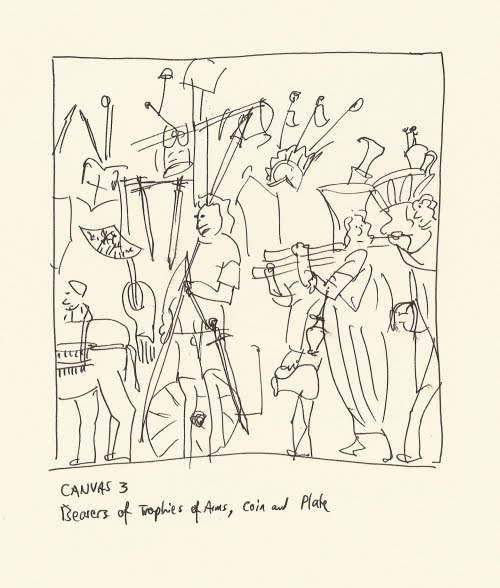 CANVAS 3
Bearers of Trophies of Arms, Coin and Plate